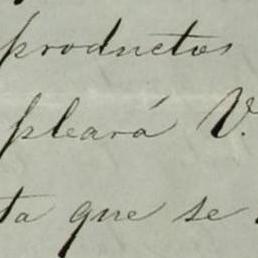 productos
pleará V.
ta que se